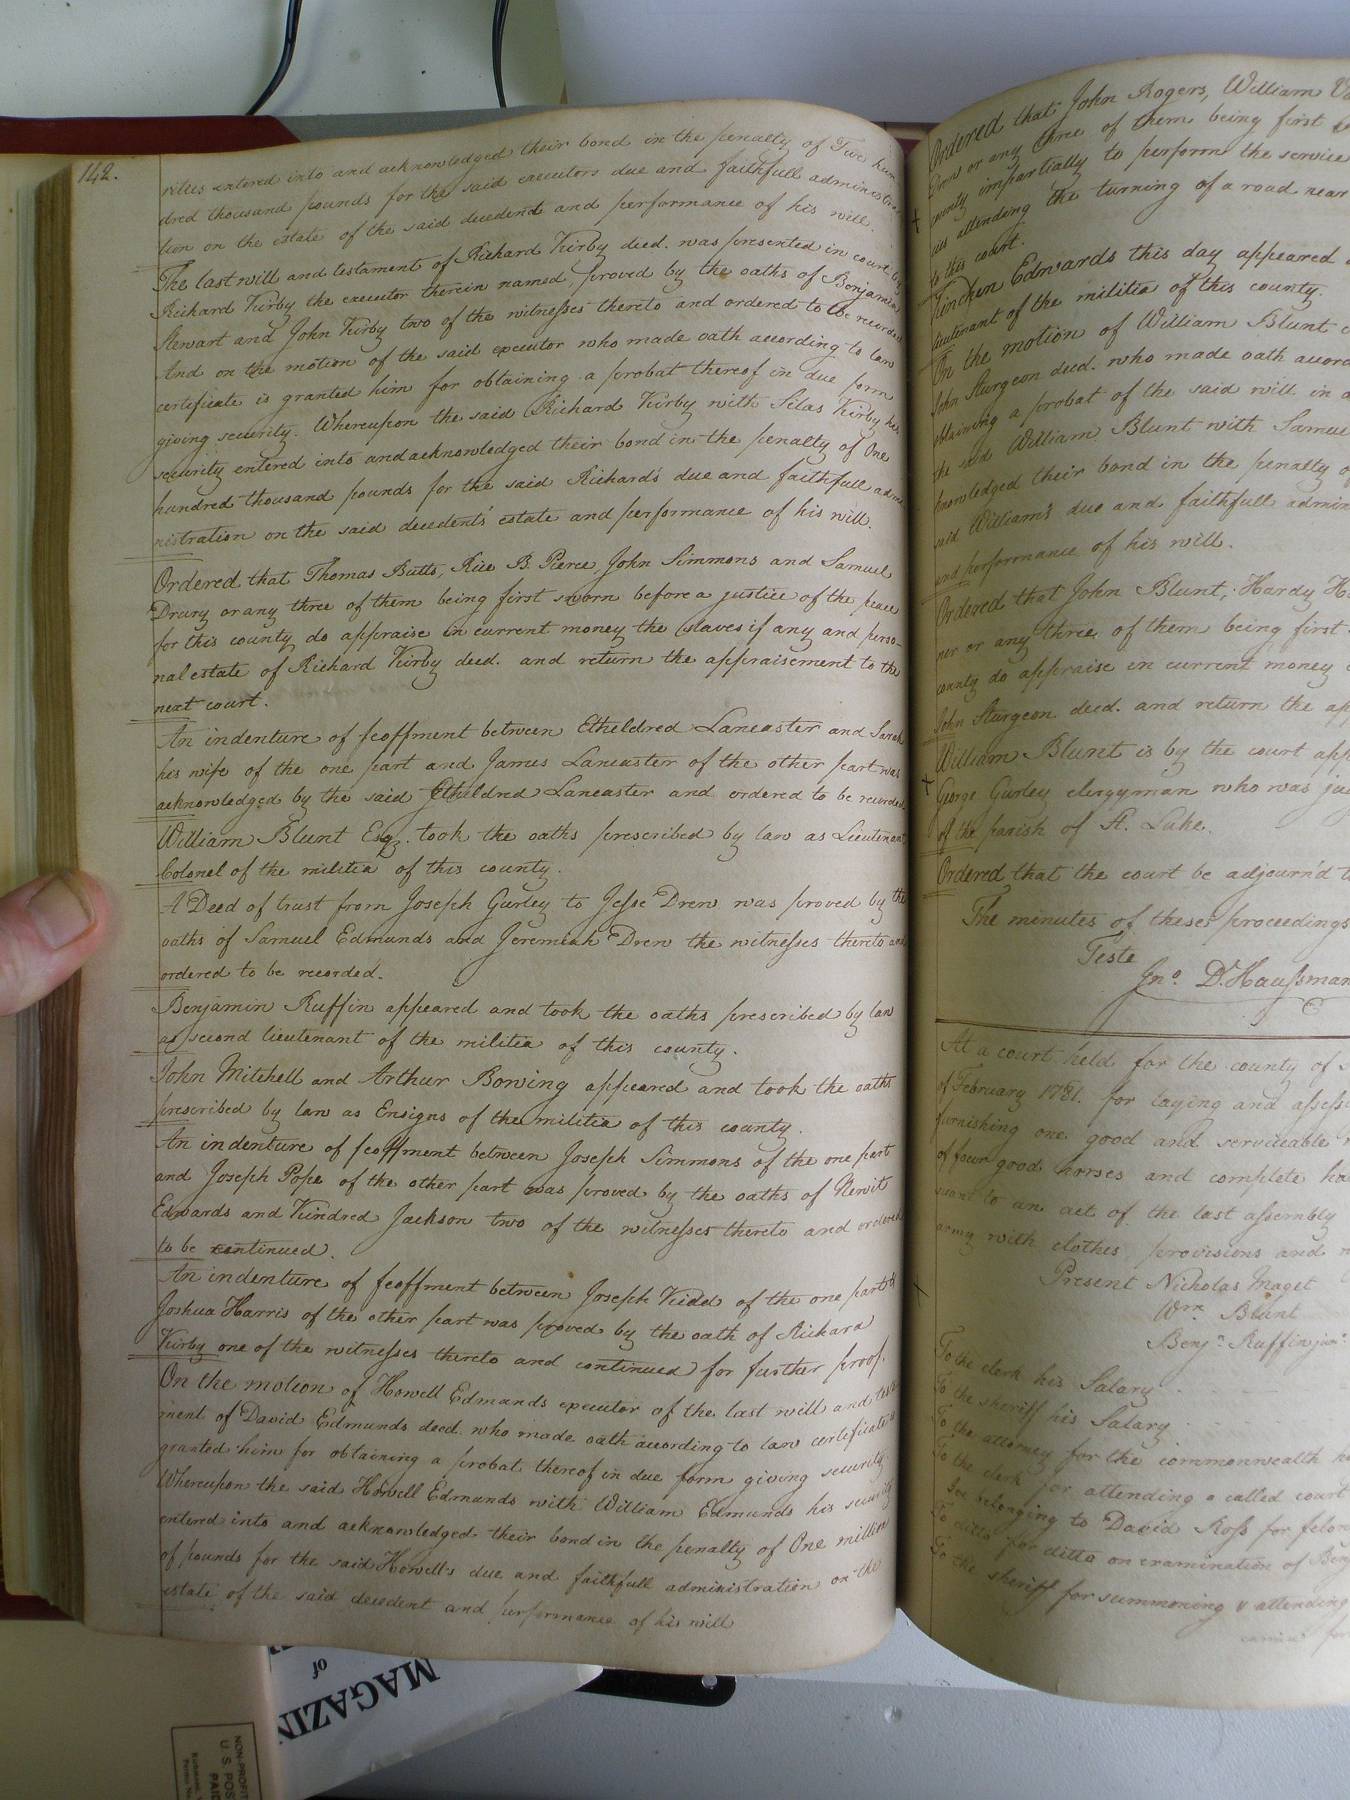 142.
rities entered into and acknowledged their bond in the penalty of Two hun
dred thousand pounds for the said executors due and faithfull administra
tion on the estate of the said decedent and performance of his will.
The last will and testament of Richard Kirby deed. was presented in court by
Richard Kirby the executor therein named, proved by the oaths of Benjamin
Stewart and John Kirby two of the witnesses thereto and ordered to be recorded
And on the motion of the said executor who made oath according to law
certificate is granted him for obtaining a probat thereof in due form
giving security. Whereupon the said Richard Kirby with Silas Kirby his
security entered into and acknowledged their bond in the penalty of One
hundred thousand pounds for the said Richard's due and faithfull admi
nistration on the said decedents' estate and performance of his will.
Ordered that Thomas Butts, Rice B. Pierce, John Simmons and Samuel
Drury or any three of them being first sworn before a justice of the peace
for this county do appraise in current money the slaves if any and perso-
nal estate of Richard Kirby deed. and return the appraisement to the
next court.
An indenture of feoffment between Etheldred Lancaster and Sarah
his wife of the one part and James Lancaster of the other part was
acknowledged by the said Etheldred Lancaster and ordered to be recorded
William Blunt Esq. took the oaths prescribed by law as Lieutenant
Colonel of the militia of this county.
A Deed of trust from Joseph Gurley to Jesse Drew was proved by the
oaths of Samuel Edmunds and Jeremiah Drew the witnesses thereto and
ordered to be recorded.
Benjamin Ruffin appeared and took the oaths prescribed by law
as second lieutenant of the militia of this county.
John Mitchell and Arthur Bowing appeared and took the oaths
prescribed by law as Ensigns of the militia of this county.
An indenture of feoffment between Joseph Simmons of the one part
and Joseph Pope of the other part was proved by the oaths of Newit
Edwards and Kindred Jackson two of the witnesses thereto and ordered
to be continued.
An indenture of feoffment between Joseph Kidd of the one part &
Joshua Harris of the other part was proved by the oath of Richard
Kirby one of the witnesses thereto and continued for further proof.
On the motion of Howell Edmunds executor of the last will and testa
ment of David Edmunds deed. who made oath according to law certificate is
granted him for obtaining a probat thereof in due form giving security.
Whereupon the said Howell Edmunds with William Edmunds his security
entered into and acknowledged their bond in the penalty of One million
of pounds for the said Howell's due and faithfull administration on the
estate of the said decedent and performance of his will
Ordered that John Rogers, William
or any three of them being first
county impartially to perform the service
attending the turning of a road near
to this court.
Kinchen Edwards this day appeared
lieutenant of the militia of this county.
On the motion of William Blunt
John Sturgeon deed. who made oath accor
obtaining a probat of the said will in
the said William Blunt with Samuel
knowledged their bond in the penalty of
said William's due and faithfull admin
and performance of his will.
Ordered that John Blunt, Hardy
ner or any three of them being first
county do appraise in current money
John Sturgeon deed. and return the ap
William Blunt is by the court app
George Gurley clergyman who was
of the parish of St. Luke.
Ordered that the court be adjourn'd
The minutes of these proceedings
Teste
Jno. D. Haussman
At a court held for the county of
of February 1781. for laying and assess
furnishing one good and serviceable
of four good horses and complete ha
suant to an act of the last assembly
army with clothes, provisions and
Present Nicholas Maget
Wm Blunt
Benjn. Ruffin junr.
To the clerk his Salary
To the sheriff his Salary
To the attorney for the commonwealth
To the clerk for attending a called court
Joe belonging to David Ross for felon
To ditto for ditto on examination of Benj
To the sheriff for summoning & attending
MAGAZIN
of
NON-PROFIT
U. S. POS
PAID